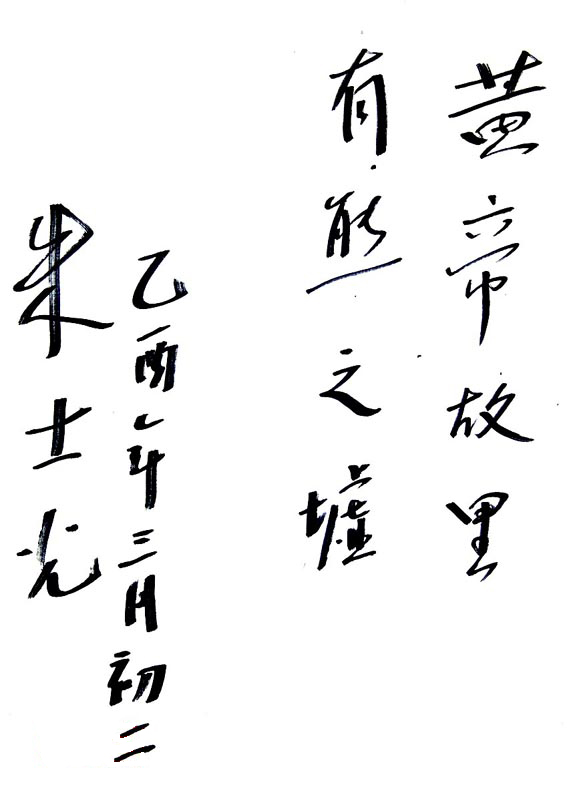 黄帝故里
有熊之墟
乙酉年三月初二
朱士光